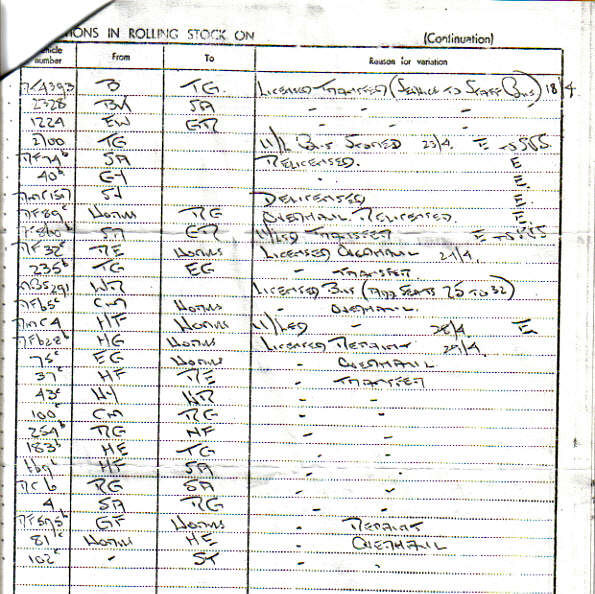 IONS IN ROLLING STOCK ON (Continuation)
Vehicle number From To Reason for variation
B TG. LICENSED TRANSFER (SERVICE TO STAFF BUS) 18/4.
2328 SA - - -
1224 EW GR - - -
2100 TG U/L BUS STORED 23/4. E
SA RELICENSED. E
40 E.
DELICENSED E.
RF89 WORKS RG OVERHAUL. RELICENSED. E
SA GR U/LED TRANSFER E
RF32 RE WORKS LICENSED OVERHAUL 24/4.
235 TG EG - TRANSFER
WR LICENSED BUS (ADD SEATS 25 TO 32)
RF65 CM WORKS - OVERHAUL.
RMC4 HF WORKS U/LED - 28/4 E
RF622 HG WORKS LICENSED REPAIRS 29/4.
75 EG WORKS - OVERHAUL
37 HF RE - TRANSFER
43 WR - -
100 CM RG - -
259 RG HF - -
183 HE TG - -
HF SA - -
RG SA - -
4 SA RG - -
RF575 GF WORKS - REPAIRS
81 WORKS HE - OVERHAUL
102 - ST - -